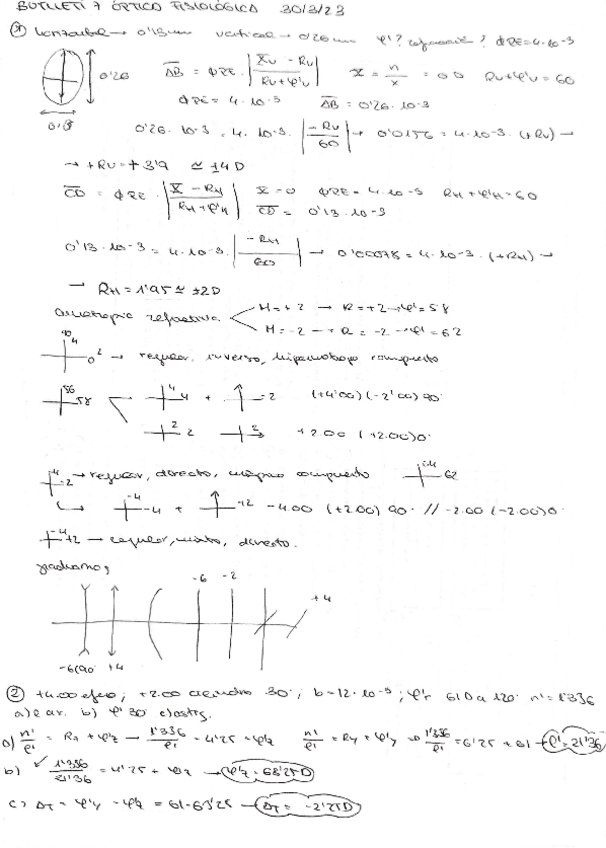 BUTLLETÍ 7 ÓPTICO FISIOLÓGICA 30/3/23
① horizontal → 0'13mm vertical → 0'26mm φ'? refracció? ΦPE=4·10-3
0'26 AB = ΦPE · |X̄v - Rv / Rv+φ'v| X = n/x = 00 Rv+φ'v = 60
0'13 ΦPE = 4·10-3 AB = 0'26·10-3
0'26·10-3 = 4·10-3 · |-Rv/60| → 0'0156 = 4·10-3 · (+Rv) →
→ +Rv = +3'9 ≃ ±4D
CD = ΦPE · |X̄ - RH / RH+φ'H| X = 0 ΦPE = 4·10-3 RH+φ'H = 60
CD = 0'13·10-3
0'13·10-3 = 4·10-3 · |-RH/60| → 0'0078 = 4·10-3 · (+RH) →
→ RH = 1'95 ≃ ±2D
ametropia refractiva H = +2 → R = +2 → φ' = 58
H = -2 → R = -2 → φ' = 62
90 4 0 2 → regular, inverso, hipermétrope compuesto
56 58 4 4 + -2 (+4'00)(-2'00)90º
2 2 2 +2.00 (+2.00)0º
-4 -2 → regular, directo, miópico compuesto 64 62
-4 -4 + +2 -4.00 (+2.00) 90º // -2.00 (-2.00)0º
-4 +2 → regular, mixto, directo.
-6 -2 +4
-6(90º +4
② +4.00 esfco; +2.00 cilindro 30º; b=12·10-3; φ'r 61D a 120º n'=1'336
a) e av. b) φ' 30º c) astg.
a) n'/l' = Rz + φ'z → 1'336/l' = 4'25 + φ'z n'/l' = Ry + φ'y → 1'336/l' = 6'25 + 61 → l' = 21'36
b) 1'336/21'36 = 4'25 + φz → φ'z = 63'25D
c) AT = φ'y - φ'z = 61-63'25 → AT = -2'25D